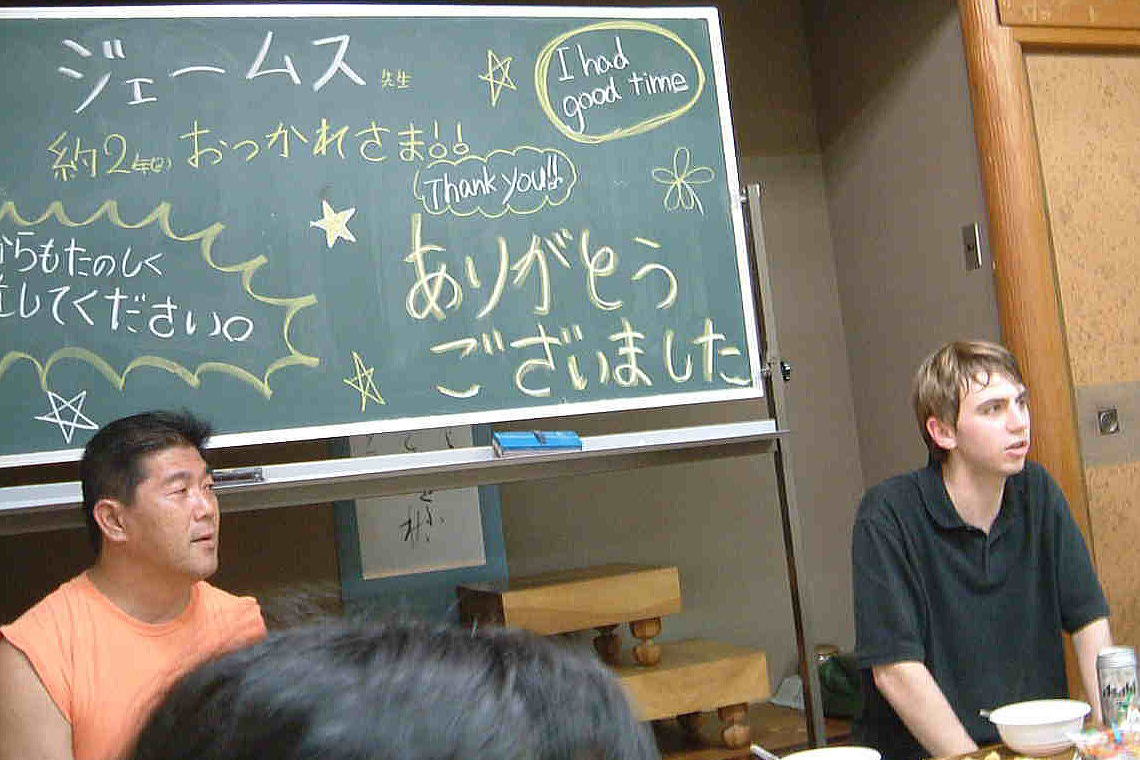 ジェームス先生
I had
good time
約2年(?) おっかれさま!!
Thank you!!
ありがとう
ございました
らもたのしく
してください。
Asahi